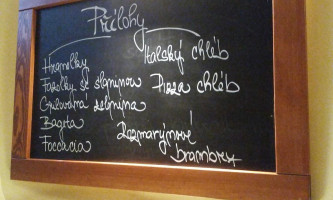 Přílohy
Hranolky
Fazolky se slaninou
Grilovaná zelenina
Bageta
Foccacia
Italský chléb
Pizza chléb
Rozmarýnové
brambory